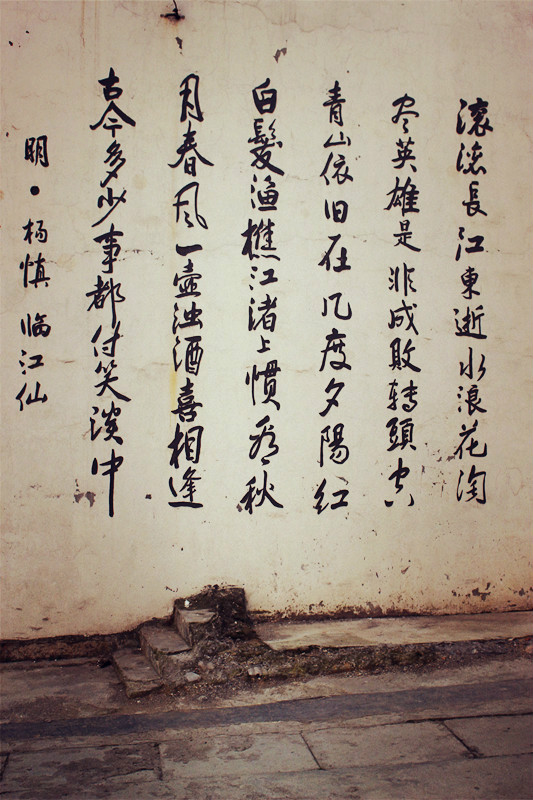 滚滚長江東逝水浪花淘
尽英雄是非成敗轉頭空
青山依旧在几度夕陽红
白髮渔樵江渚上慣看秋
月春风一壶浊酒喜相逢
古今多少事都付笑谈中
明·杨慎临江仙